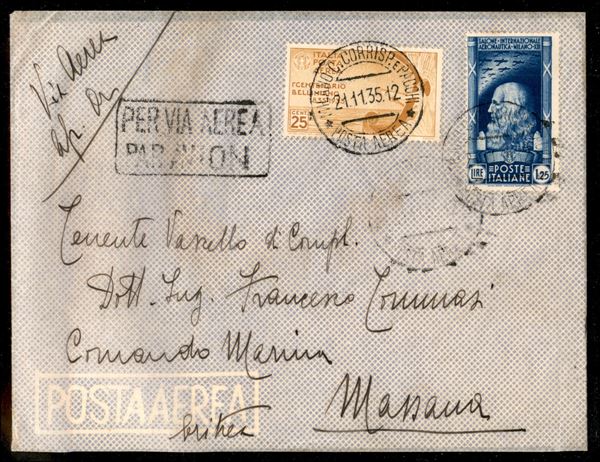 Via Aerea
PER VIA AEREA
PAR AVION
ITALIA
I° CENTENARIO
BELLINIANO
CENT
25
CORRISP. E PACCHI
21.11.35.12
* POSTA AEREA *
SALONE · INTERNAZIONALE
AERONAUTICA · MILANO · XIII
POSTE
ITALIANE
LIRE
1.25
Tenente Vascello di Compl.
Dott. Ing. Francesco Tommasi
Comando Marina
POSTA AEREA
Massaua
Eritrea